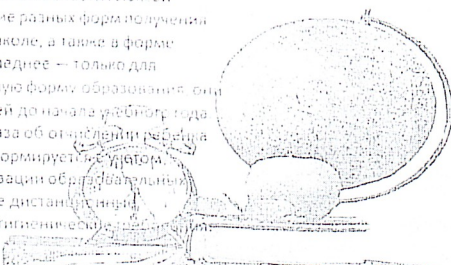 ие разных форм получения
коле, а также в форме
леднее — только для
ную форму образования, они
ей до начала учебного года
аза об отчислении ребенка
формируется с учетом
зации образовательных
е дистанционн
гигиенически